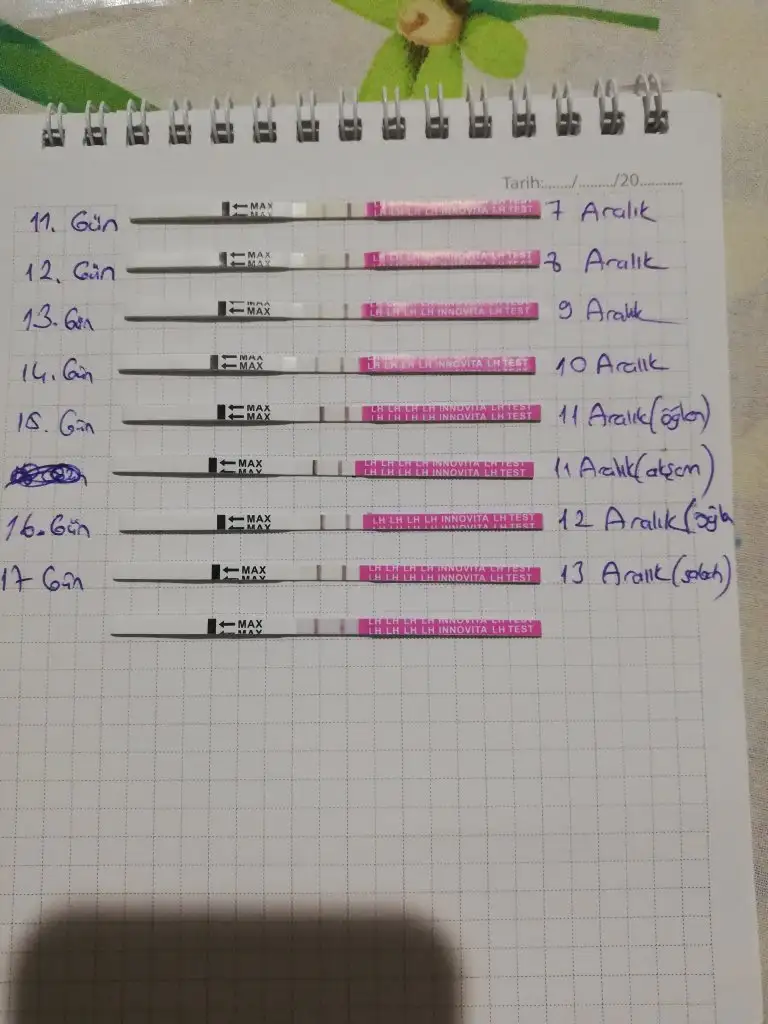 Tarih:....../........./20...........
11. Gün ←MAX LH LH LH LH INNOVITA LH TEST 7 Aralık
12. Gün ←MAX LH LH LH LH INNOVITA LH TEST 8 Aralık
13. Gün ←MAX LH LH LH LH INNOVITA LH TEST 9 Aralık
14. Gün ←MAX LH LH LH LH INNOVITA LH TEST 10 Aralık
15. Gün ←MAX LH LH LH LH INNOVITA LH TEST 11 Aralık (öğlen)
←MAX LH LH LH LH INNOVITA LH TEST 11 Aralık (akşam)
16. Gün ←MAX LH LH LH LH INNOVITA LH TEST 12 Aralık (öğle
17 Gün ←MAX LH LH LH LH INNOVITA LH TEST 13 Aralık (sabah)
←MAX LH LH LH LH INNOVITA LH TEST